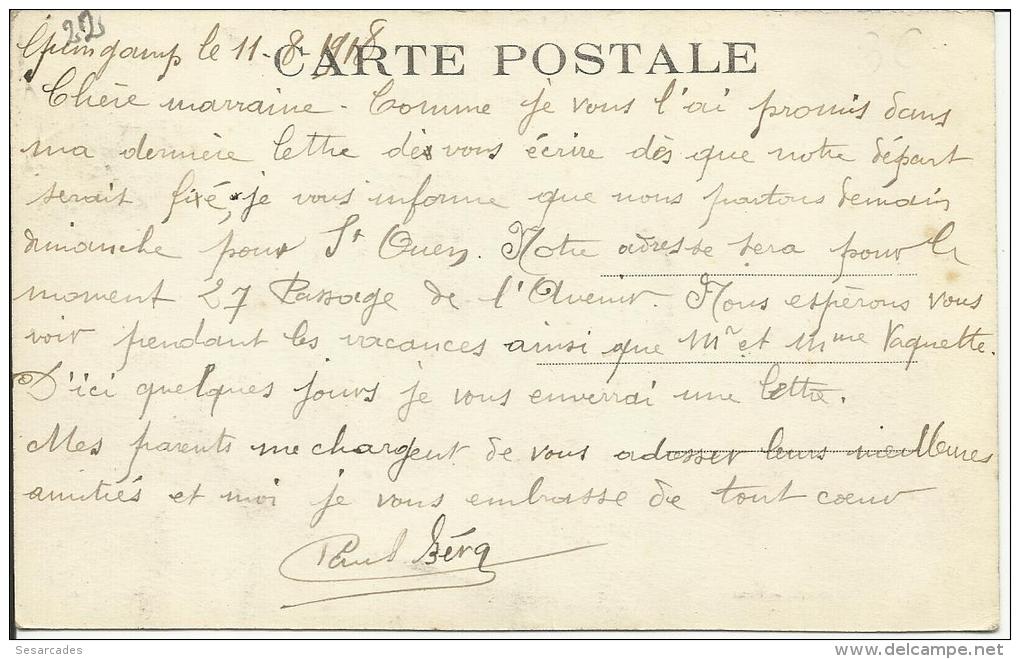 22
Guingamp le 11-8-1918
CARTE POSTALE
Chère marraine - Comme je vous l'ai promis dans
ma dernière lettre de vous écrire dès que notre départ
serait fixé, je vous informe que nous partons demain
dimanche pour St Ouen. Notre adresse sera pour le
moment 27 Passage de l'Avenir. Nous espérons vous
voir pendant les vacances ainsi que Mr et Mme Vaquette.
D'ici quelques jours je vous enverrai une lettre.
Mes parents me chargent de vous adresser leurs meilleures
amitiés et moi je vous embrasse de tout cœur
Paul
Sesarcades
www.delcampe.net